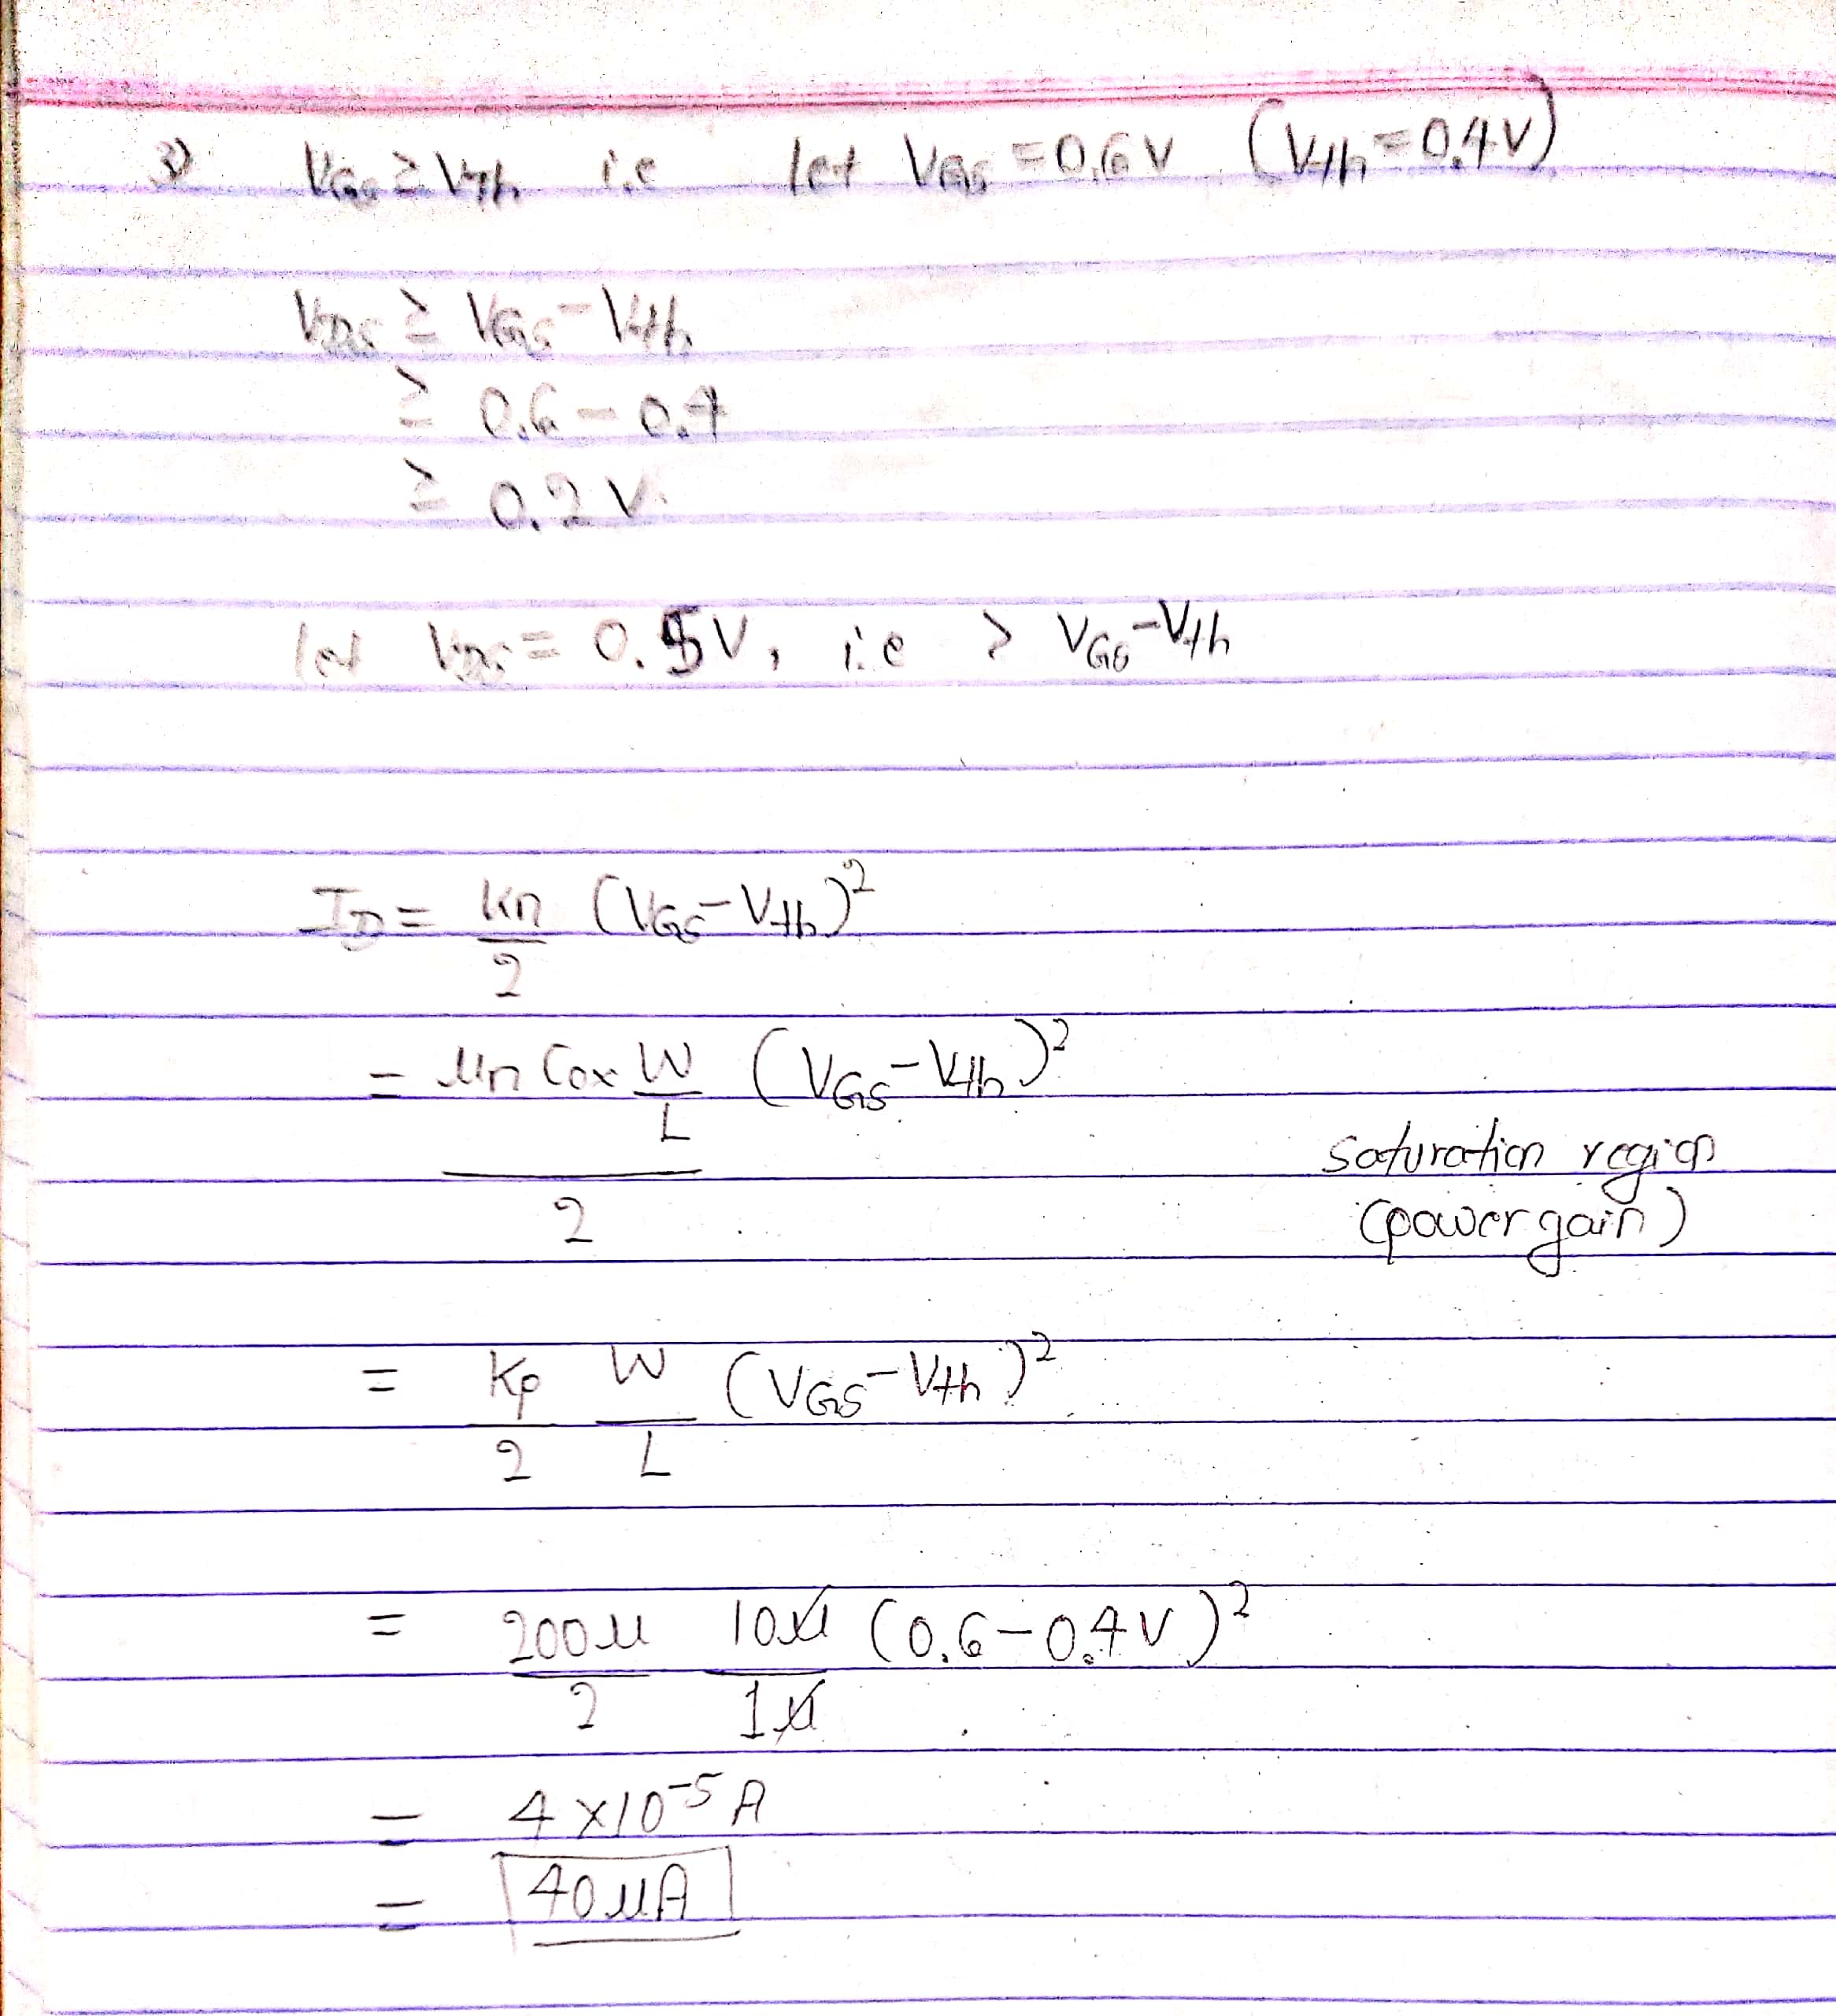 3) VGS ≥ Vth i.e let VGS = 0.6V (Vth = 0.4V)
VDS ≥ VGS - Vth
≥ 0.6 - 0.4
≥ 0.2V.
let VDS = 0.5V, i.e > VGS - Vth
ID = kn/2 (VGS - Vth)²
= μn Cox W/L / 2 (VGS - Vth)²
saturation region
(power gain)
= Kp/2 W/L (VGS - Vth)²
= 200μ/2 10μ/1μ (0.6 - 0.4V)²
= 4 × 10⁻⁵ A
= 40μA